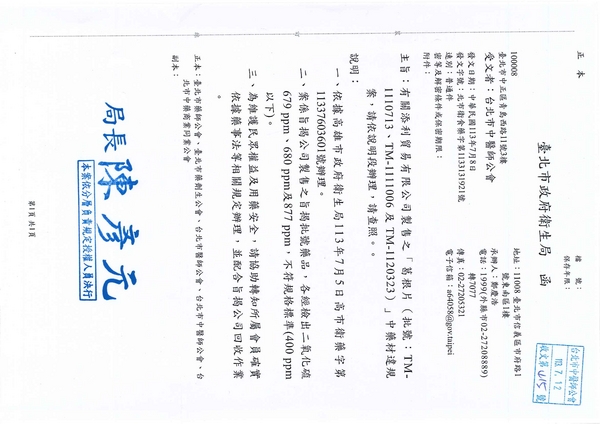 正本
檔　號：
保存年限：
臺北市政府衛生局　函
地址：11008 臺北市信義區市府路1
號東南區1樓
承辦人：鄭慶浩
電話：1999(外縣市02-27208889)
轉7077
傳真：02-27205321
電子信箱：a64058@gov.taipei
台北市中醫師公會
113.7.12
收文第415號
100008
臺北市中正區青島西路11號3樓
受文者：台北市中醫師公會
發文日期：中華民國113年7月8日
發文字號：北市衛食藥字第1133131921號
速別：普通件
密等及解密條件或保密期限：
附件：
主旨：有關添利貿易有限公司製售之「葛根片（批號：TM-
1110713、TM-1111006及 TM-1120323）」中藥材違規
案，請依說明段辦理，請查照。
說明：
一、依據高雄市政府衛生局113年7月5日高市衛藥字第
11337603601號辦理。
二、案係旨揭公司製售之旨揭批號藥品，各經檢出二氧化硫
679 ppm、680 ppm及877 ppm，不符規格標準(400 ppm
以下)。
三、為維護民眾權益及用藥安全，請協助轉知所屬會員確實
依據藥事法等相關規定辦理，並配合旨揭公司回收作業
。
正本：臺北市藥師公會、臺北市藥劑生公會、台北市醫師公會、台北市中醫師公會、台
北市中藥商業同業公會
副本：
局長 陳彥元
本案依分層負責規定授權人員決行
第1頁 共1頁